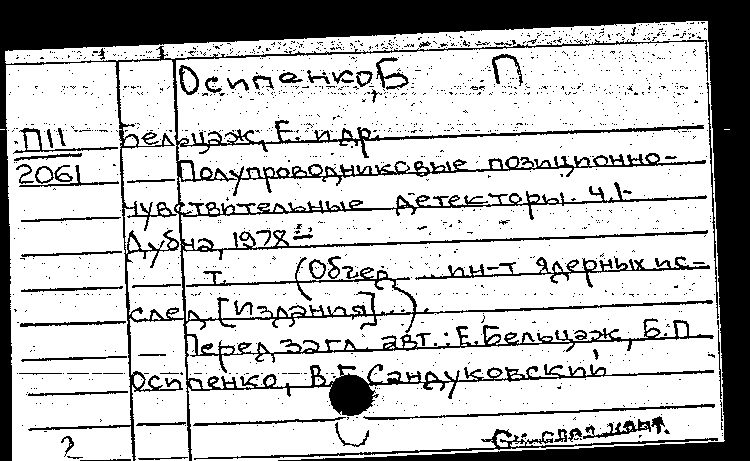 Осипенко, Б П
П11 Бельцаж, Е. и др.
2061 Полупроводниковые позиционно-
чувствительные детекторы. Ч.1-
Дубна, 1978 –
т. (Объед. ин-т ядерных ис-
след. [Издания]....).
Перед загл. авт.: Е. Бельцаж, Б.П.
Осипенко, В. Г. Сандуковский
2 См. след. карт.